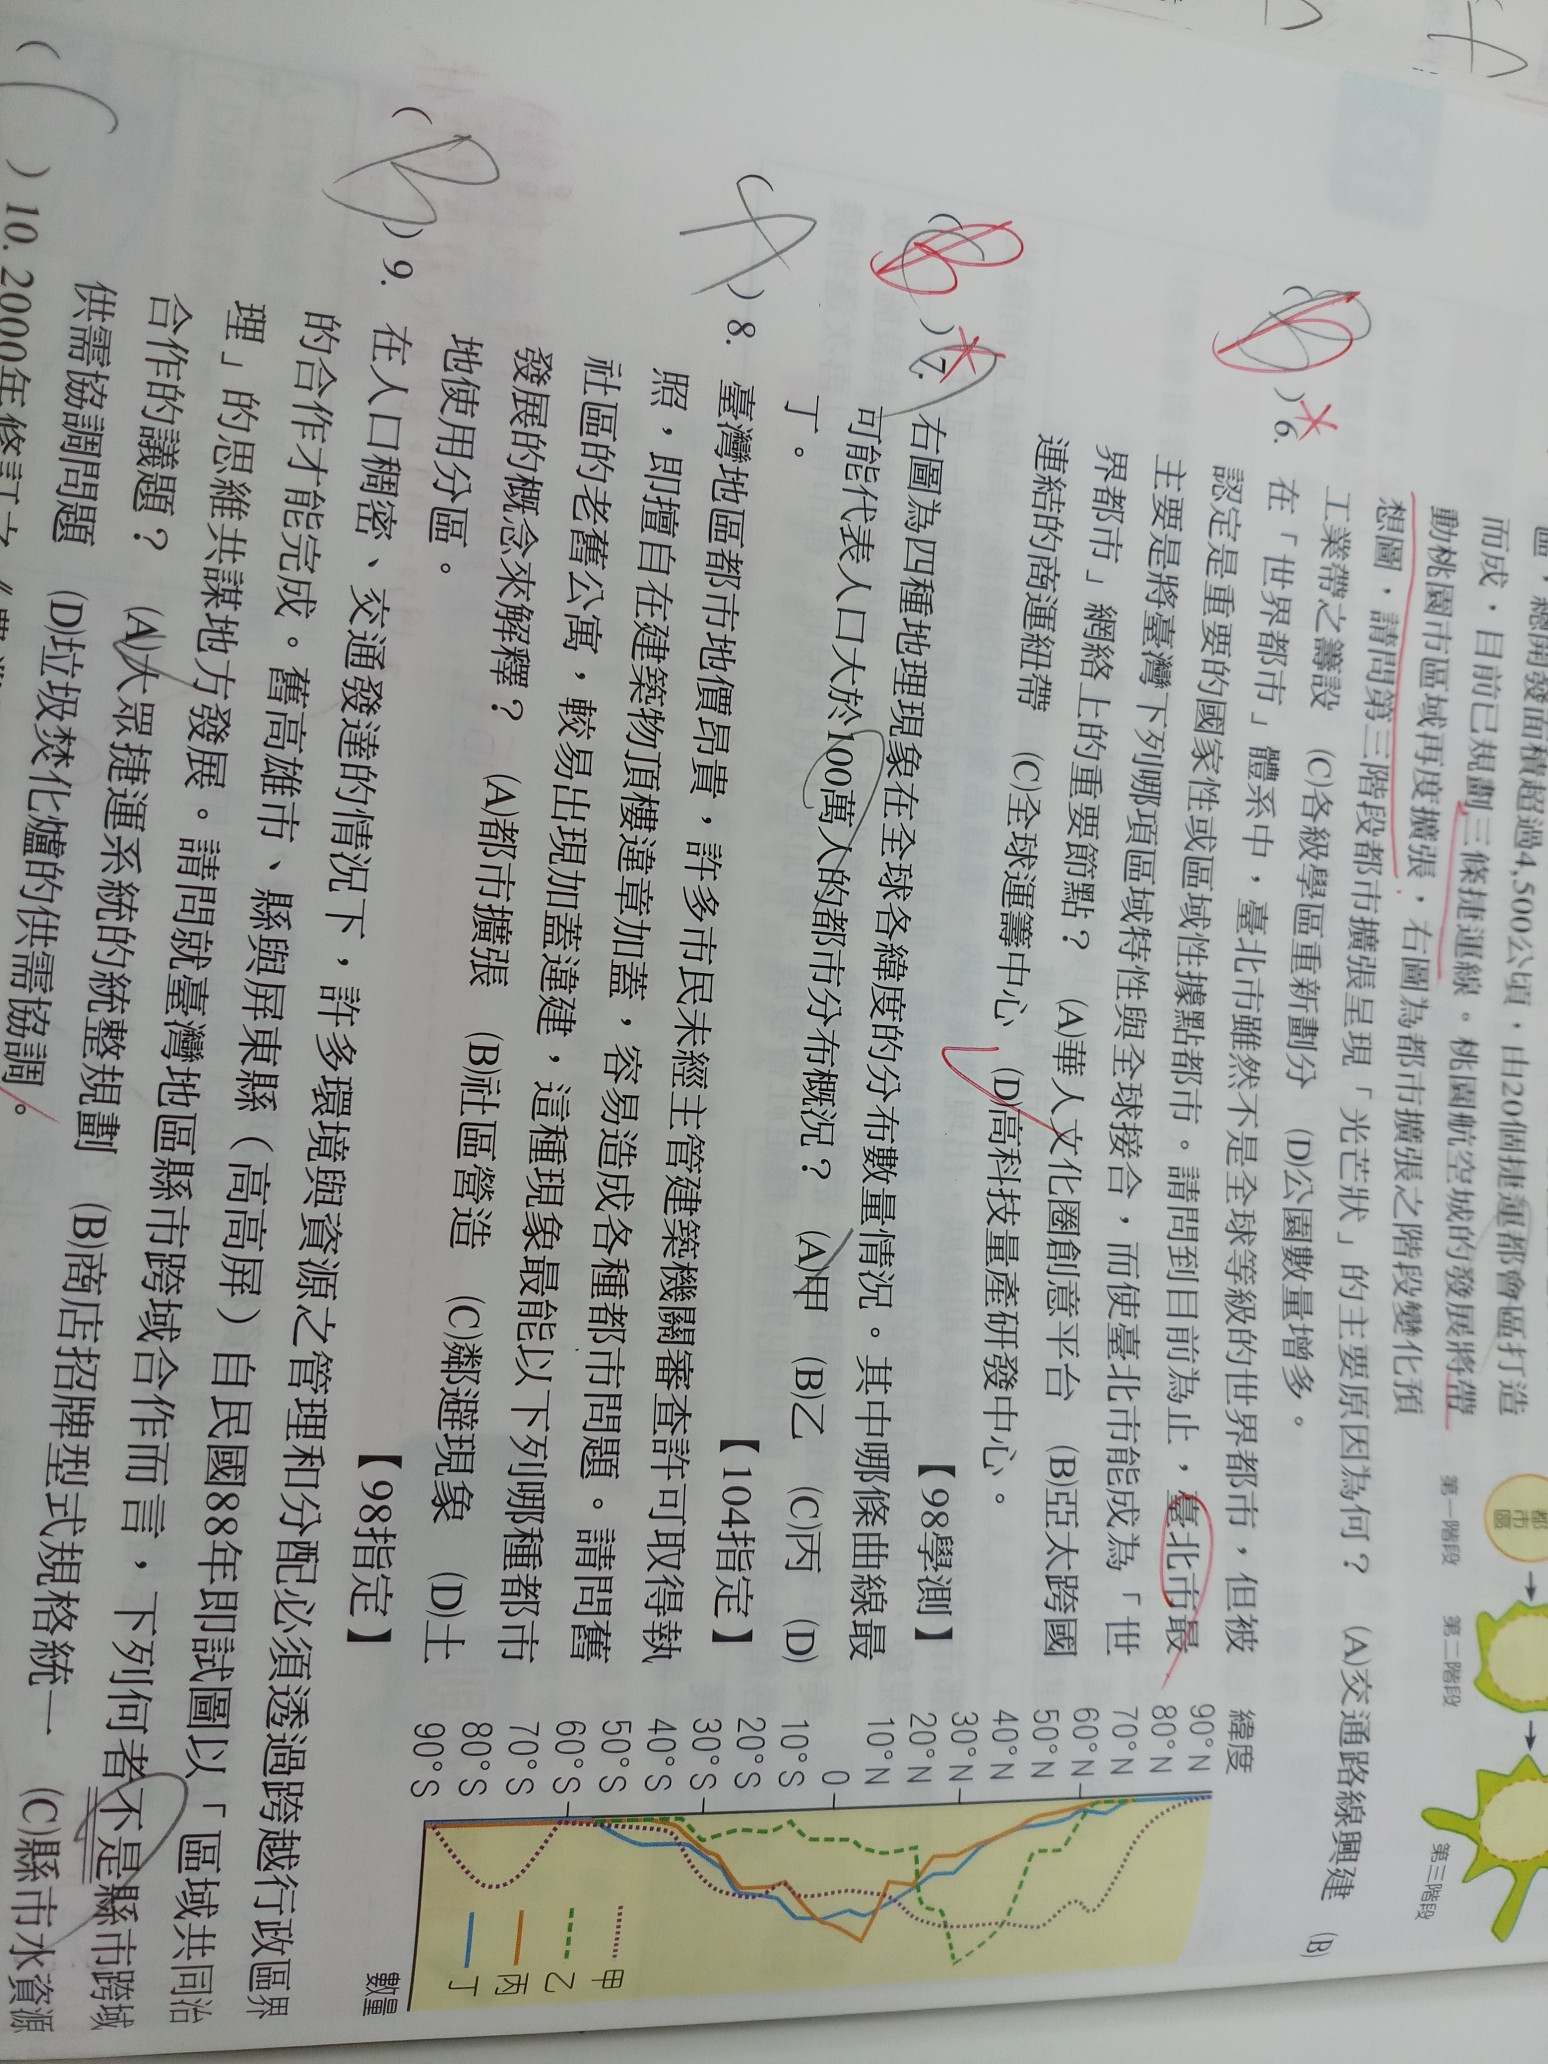 區，總開發面積超過4,500公頃，由20個捷運都會區打造
而成，目前已規劃三條捷運線。桃園航空城的發展將帶
動桃園市區域再度擴張，右圖為都市擴張之階段變化預
想圖，請問第三階段都市擴張呈現「光芒狀」的主要原因為何？ (A)交通路線興建 (B)
工業帶之籌設 (C)各級學區重新劃分 (D)公園數量增多。
都市區
第一階段 第二階段 第三階段
(B)*6. 在「世界都市」體系中，臺北市雖然不是全球等級的世界都市，但被
認定是重要的國家性或區域性據點都市。請問到目前為止，臺北市最
主要是將臺灣下列哪項區域特性與全球接合，而使臺北市能成為「世
界都市」網絡上的重要節點？ (A)華人文化圈創意平台 (B)亞太跨國
連結的商運紐帶 (C)全球運籌中心 (D)高科技量產研發中心。
【98學測】
(B)*7. 右圖為四種地理現象在全球各緯度的分布數量情況。其中哪條曲線最
可能代表人口大於100萬人的都市分布概況？ (A)甲 (B)乙 (C)丙 (D)
丁。
【104指定】
緯度
90°N
80°N
70°N
60°N
50°N
40°N
30°N
20°N
10°N
0
10°S
20°S
30°S
40°S
50°S
60°S
70°S
80°S
90°S
甲
乙
丙
丁
數量
(A)8. 臺灣地區都市地價昂貴，許多市民未經主管建築機關審查許可取得執
照，即擅自在建築物頂樓違章加蓋，容易造成各種都市問題。請問舊
社區的老舊公寓，較易出現加蓋違建，這種現象最能以下列哪種都市
發展的概念來解釋？ (A)都市擴張 (B)社區營造 (C)鄰避現象 (D)土
地使用分區。
【98指定】
(B)9. 在人口稠密、交通發達的情況下，許多環境與資源之管理和分配必須透過跨越行政區界
的合作才能完成。舊高雄市、縣與屏東縣（高高屏）自民國88年即試圖以「區域共同治
理」的思維共謀地方發展。請問就臺灣地區縣市跨域合作而言，下列何者不是縣市跨域
合作的議題？ (A)大眾捷運系統的統整規劃 (B)商店招牌型式規格統一 (C)縣市水資源
供需協調問題 (D)垃圾焚化爐的供需協調。
( )10. 2000年修訂之